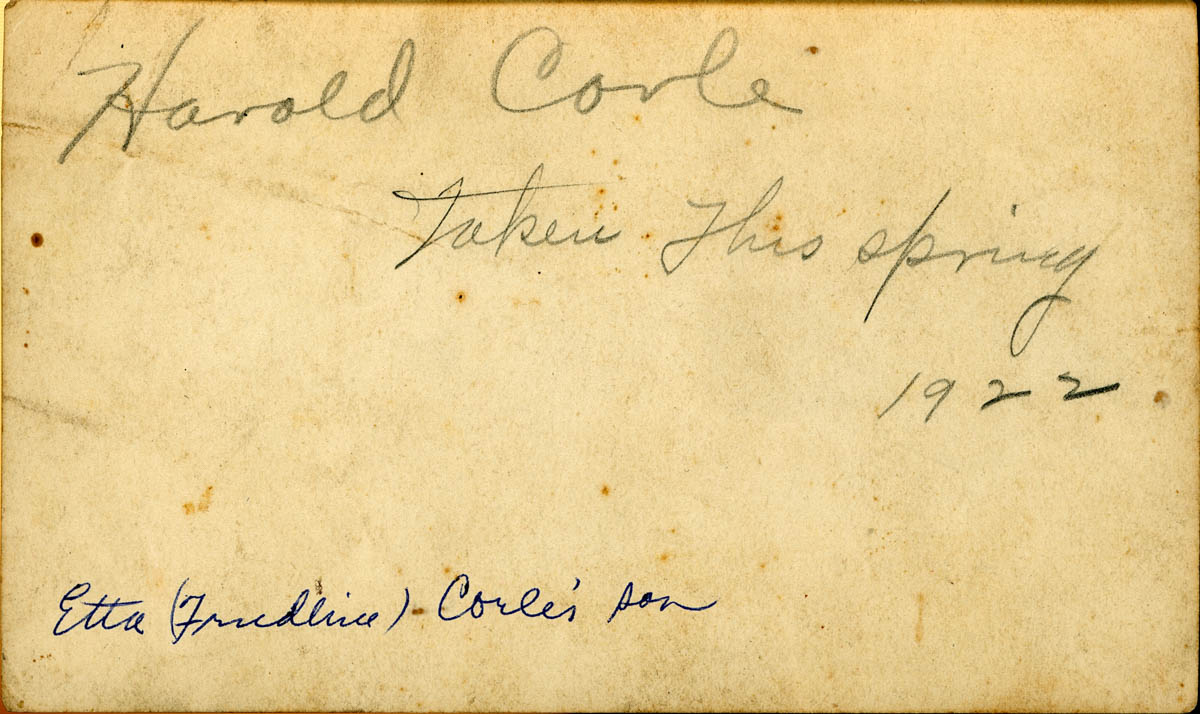 Harold Corle
Taken This spring
1922
Etta (Friedline) Corle's son